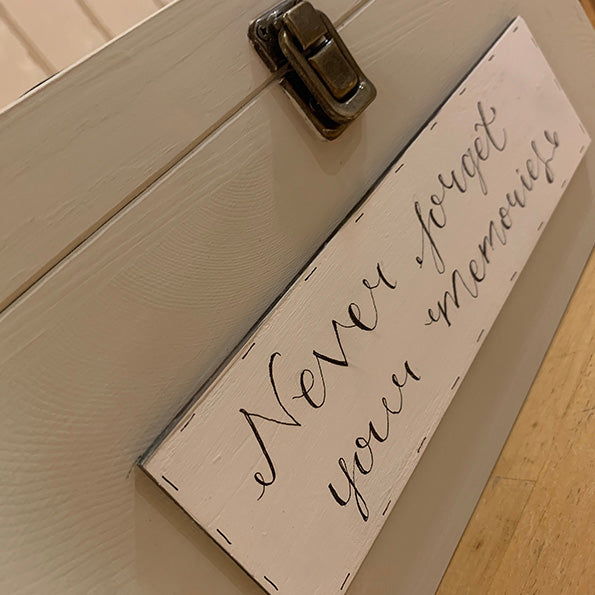 Never forget
your memories